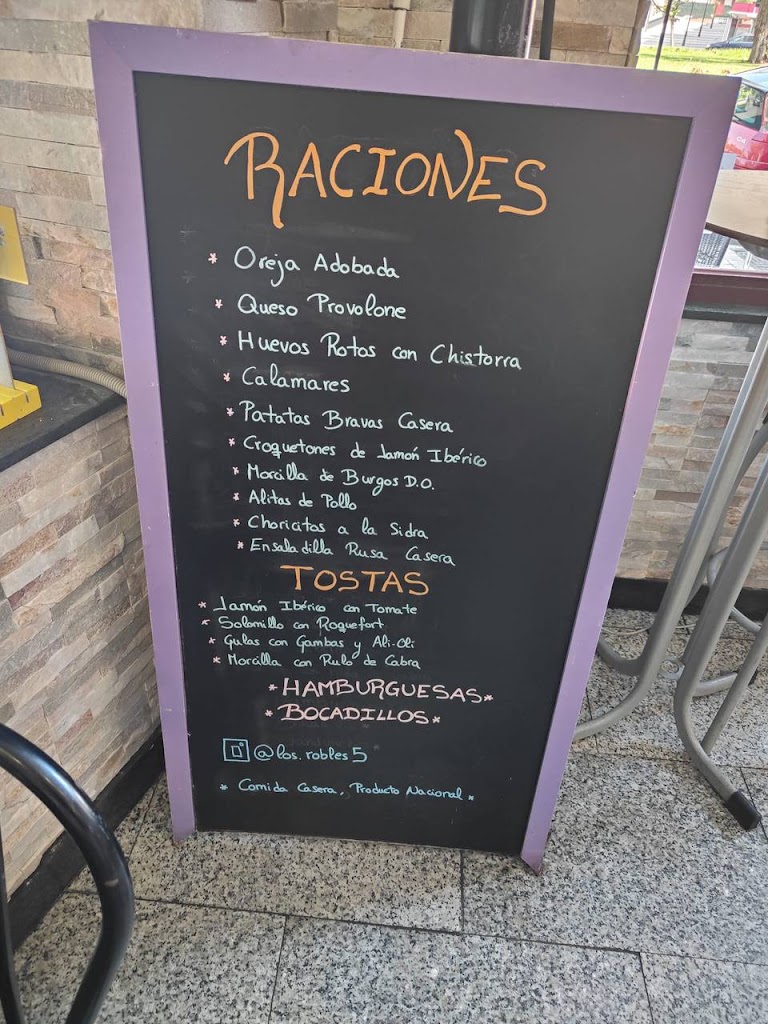 RACIONES
* Oreja Adobada
* Queso Provolone
* Huevos Rotos con Chistorra
* Calamares
* Patatas Bravas Casera
* Croquetones de Jamón Ibérico
* Morcilla de Burgos D.O.
* Alitas de Pollo
* Choricitos a la Sidra
* Ensaladilla Rusa Casera
TOSTAS
* Jamón Ibérico con Tomate
* Solomillo con Roquefort
* Gulas con Gambas y Ali-Oli
* Morcilla con Rulo de Cabra
* HAMBURGUESAS *
* BOCADILLOS *
@los.robles5
* Comida Casera, Producto Nacional *